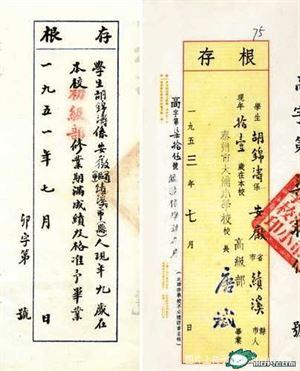 存根
學生胡錦濤係安徽績溪縣人現年九歲在
本校初級部修業期滿成績及格准予畢業
一九五一年七月 日
卯字第 號
75
存根
學生胡錦濤係安徽省績溪縣市人
現年拾壹歲在本校高級部畢業
泰州市大浦小學校校長 唐斌
一九五三年七月 日
高字第柒拾伍號